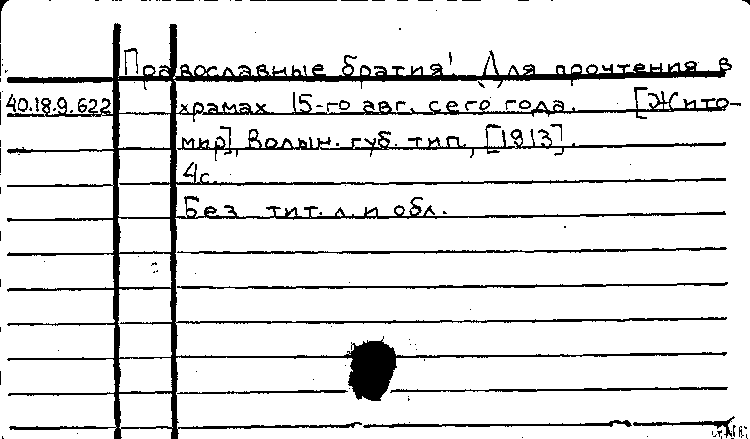 Православные братия! Для прочтения в
40.18.9.622 храмах 15-го авг. сего года. [Жито-
мир], Волын. губ. тип., [1913].
4с.
Без тит. л. и обл.